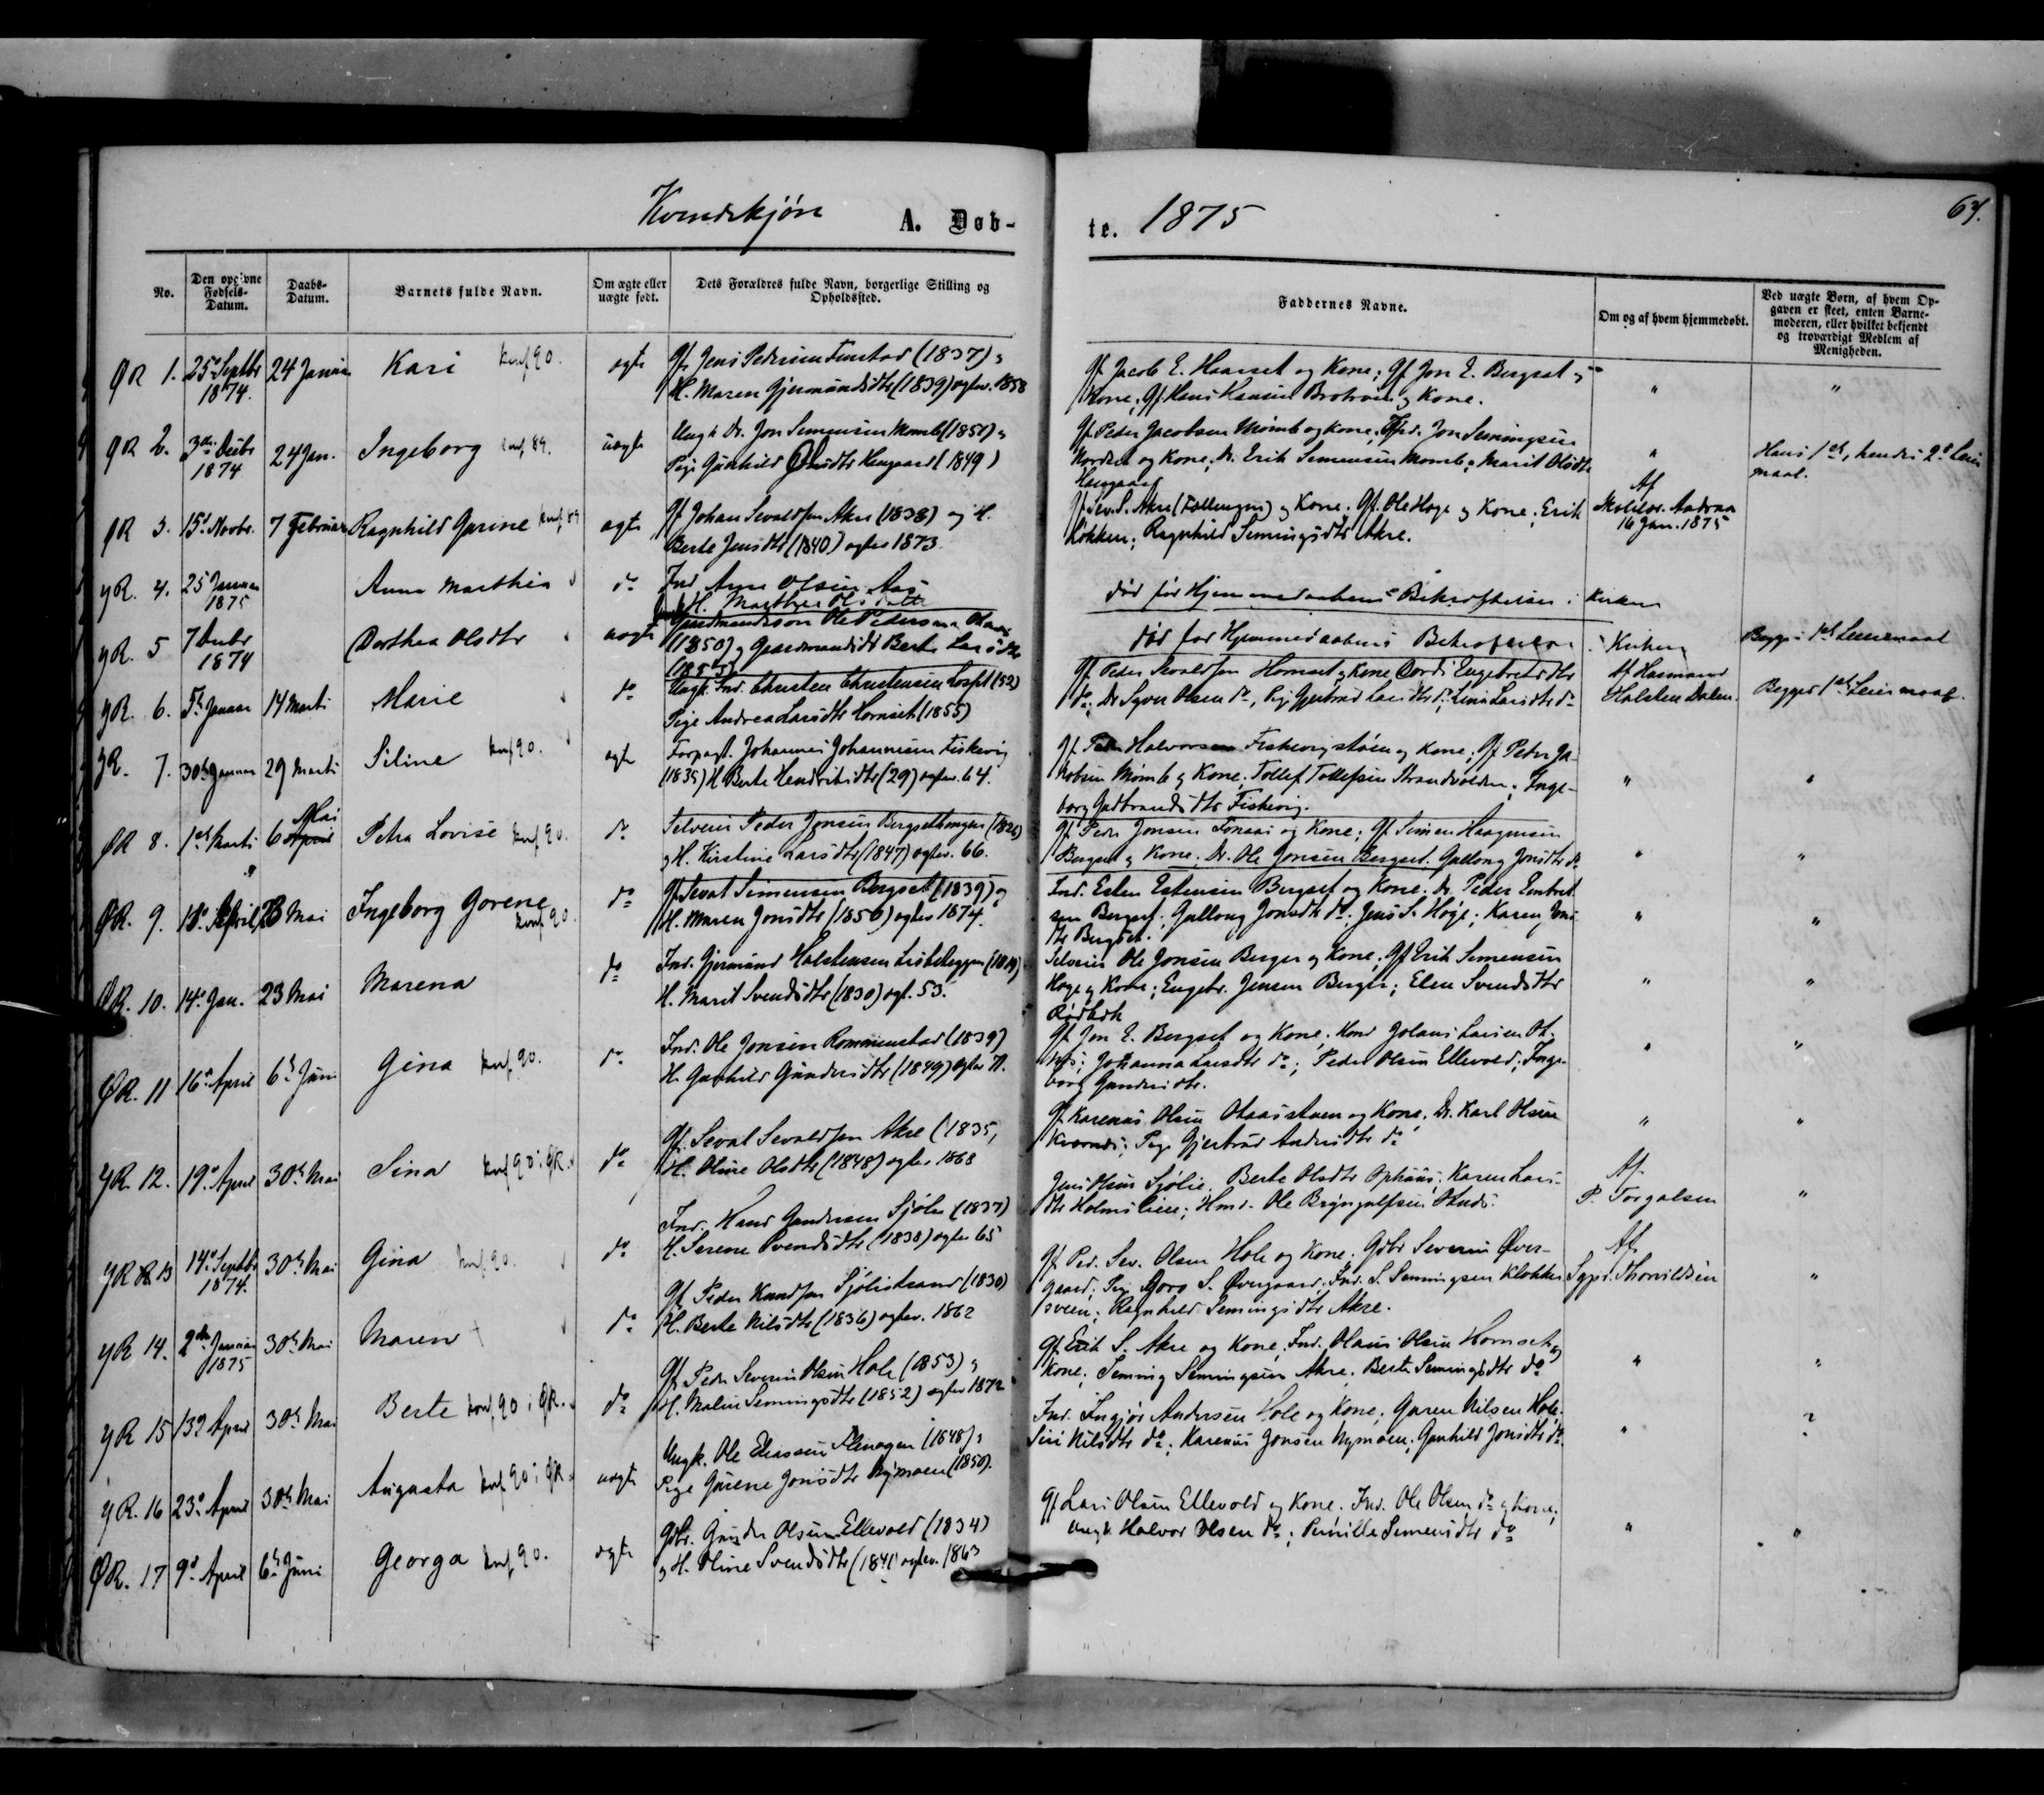 Kvindekjøn A. Døb-
te. 1875
64.
No.
Den opgivne Fødsels-Datum.
Daabs-Datum.
Barnets fulde Navn.
Om ægte eller uægte født.
Dets Forældres fulde Navn, borgerlige Stilling og Opholdssted.
Faddernes Navne.
Om og af hvem hjemmedøbt.
Ved uægte Børn, af hvem Opgaven er skeet, enten Barnemoderen, eller hvilket bekjendt og troværdigt Medlem af Menigheden.
ØR 1. 25de Septbr 1874. 24 Januar Kari konf 90. ægte
Gf. Jens Pedersen Finstad (1837) og
H. Maren Gjermundsdtr (1839) egtev. 1858
Gf Jacob E. Haarset og Kone; Gf Jon E. Bergset og
Kone; Gf Hans Hansen og Kone.
" "
ØR 2. 3die Decbr 1874 24 Jan. Ingeborg konf 89. uægte
Ungk. Dr. Jon Semensen Momb (1851) og
Pige Gunhild Olsdtr Haugaard (1849)
Gf. Peder Jacobsen Momb og Kone; Jon Semingsen
Nordset og Kone; Dr. Erik Semensen Momb; Marit Olsdtr
Haugaard
" Hans 1ste, hendes 2det Leiermaal.
ØR 3. 15de Novbr. 7 Februar Ragnhild Gurine konf 89 ægte
Gf Johan Sevaldsen Akre (1838) og H.
Berte Jensdtr (1840) egtev 1873.
Gf. Sev. S. Akre og Kone; Gf. Ole Høge og Kone; Erik
Løkken; Ragnhild Semingsdtr Akre.
Af
Skolelær. Aadraa
16 Jan. 1875
YR. 4. 25 Januar 1875 Anna Marthea do
Ind Arne Olsen Aas
H. Marthea Olsdatter
død før Hjemmedaabens Bekræftelse i Kirken
YR. 5 7 Decbr 1874 Dorthea Olsdtr uægte
Gaardmandssøn Ole Pedersen
(1850) og Gaardmandsdtr Berte Larsdtr
død før Hjemmedaabens Bekræftelse i Kirken
Begges 1ste Leiermaal
YR. 6. 5te Januar 14 Marts Marie do
Ungk. Ind. Christen Christensen (52)
Pige Andrea Larsdtr Hornset (1855)
Gf. Peder Sevaldsen Hornset og Kone Dordi Engebretsdtr
do; Dr Syver Olsen do, Pig Gjertrud Larsdtr do; Lina Larsdtr do
Af Husmand
Halsten Dalen.
Begges 1ste Leiermaal.
YR. 7. 30te Januar 29 Marts Siline konf 90. ægte
Forpagt. Johannes Johannesen Fiskvig
(1835) H Berte Hendriksdtr (29) egtev. 64.
Gf. Peder Halvorsen Fiskvigstøen og Kone; Gf Peter Ja-
kobsen Momb og Kone; Tollef Tollefsen Strandvolden; Inge-
borg Gudbrandsdtr Fiskvig.
" "
ØR 8. 1ste Marts 6 April Mai Petra Lovise konf 90. do
Selveier Peder Jonsen Bergsethaugen (1826)
og H. Kirstine Larsdtr (1847) egtev. 66.
Gf. Peder Jonsen Fonaas og Kone; Gf. Simen Haagensen
Bergset og Kone. Dr. Ole Jonsen Bergset. Gullaug Jonsdtr do
" "
ØR. 9. 18de April 23 Mai Ingeborg Gorene konf 90. do
Gf Sevat Simensen Bergset (1839) og
H. Maren Jonsdtr (1850) egtev 1874.
Ind. Esten Estensen Bergset og Kone. Dr. Peder Embret-
sen Bergset. Gullaug Jonsdtr do. Jens S. Høge; Karen Jons-
dtr Bergset.
" "
ØR. 10. 14de Jan. 23 Mai Marena do
Ind. Gjermund Halstensen
H. Marit Svendsdtr (1830) egt. 53.
Selveier Ole Jonsen Berger og Kone; Gf Erik Semensen
Høge og Kone; Engebr. Jensen Berger; Elen Svendsdtr
" "
ØR. 11 16de April 6te Juni Gina konf 90. do
Ind. Ole Jonsen Rommenstad (1839)
H. Gunhild Gundersdtr (1849) egtev 71.
Gf. Jon E. Bergset og Kone; Johanna Larsdtr do; Peder Olsen Ellevold; Inge-
borg Gundersdtr.
" "
YR. 12. 19de April 30te Mai Sina konf 90 i ØR. do
Gf. Sevat Sevaldsen Akre (1835)
H. Oline Olsdtr (1848) egtev 1868
Gf Karenus Olsen og Kone; Dr. Karl Olsen
; Pige Gjertrud Andersdtr do
" "
YR 13 14de Septbr 1874. 30te Mai Gina konf 90. do
Ind. Hans Gundersen Sjølie (1837)
H. Serene Svendsdtr (1838) egtev 65
Jens Olsen Sjølie. Berte Olsdtr Ophuus; Karen Lars-
dtr Holmslien; Hmd. Ole Brynjulfsen
Af
P. Torgalsen
"
YR 14. 2den Januar 1875 30te Mai Maren do
Gf Peder Knudsen Sjølistrand (1830)
H. Berte Nilsdtr (1836) egtev. 1862
Gf. Ped. Sev. Olsen Hole og Kone. Gdbr Severin Øver-
gaard; Pig Goro S. Øvergaard; Ind. S. Semingsen Klokker-
sveen; Ragnhild Semingsdtr Akre.
Af
Thorvildsen
"
YR 15 13de April 30te Mai Berte konf 90 i ØR. do
Gf. Peder Severin Olsen Hole (1853) og
H. Malin Semingsdtr (1852) egtev 1872
Gf. Erik S. Akre og Kone; Ind. Olaus Olsen Hornset og
Kone; Seming Semingsen Akre; Berte Semingsdtr do
" "
YR. 16 23de April 30te Mai Augusta konf 90 i ØR. uægte
Ungk. Ole Eliassen (1848) og
Pige Gurene Jonsdtr Nymoen (1850).
Ind. Ingjør Andersen Hole og Kone; Guren Nilsen Hole.
Siri Nilsdtr do; Karenus Jonsen Nymoen; Gunhild Jonsdtr do
"
ØR. 17 9de April 6te Juni Georga konf 90. ægte
Gdbr. Gunder Olsen Ellevold (1834)
og H. Oline Svendsdtr (1841) egtev. 1863
Gf Lars Olsen Ellevold og Kone. Ind. Ole Olsen do og Kone;
Ungk Halvor Olsen do; Pernille Simensdtr do
" "